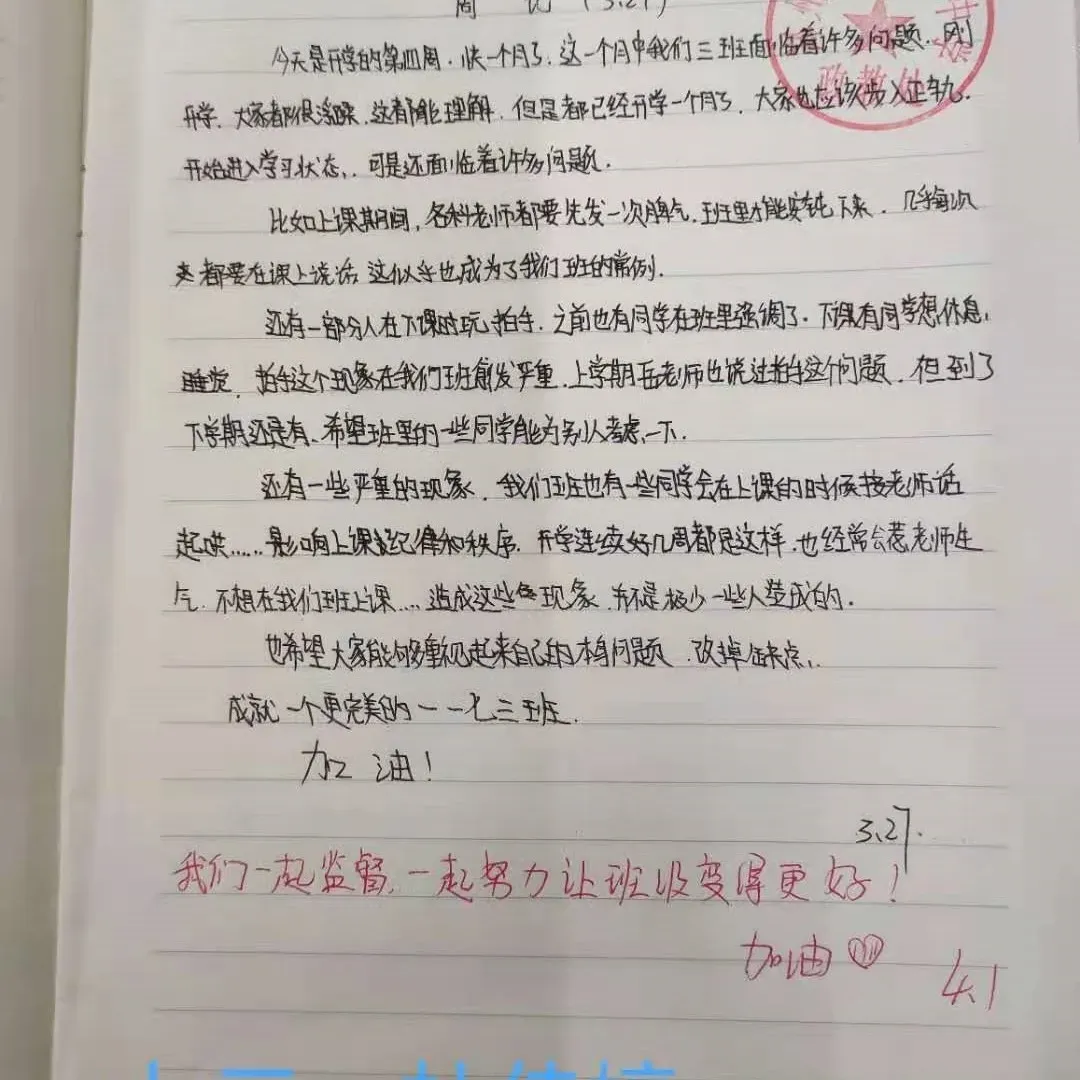 周 记（3.27）
今天是开学的第四周.快一个月了.这一个月中我们三班面临着许多问题.刚
开学.大家都很浮躁.这都能理解.但是都已经开学一个月了.大家也应该步入正轨.
开始进入学习状态.可是还面临着许多问题.
比如上课期间,各科老师都要先发一次脾气,班里才能安钝下来.几乎每次
都要在课上说话 这似乎也成为了我们班的常例.
还有一部分人在下课时玩拍手.之前也有同学在班里强调了.下课有同学想休息,
睡觉.拍手这个现象在我们班愈发严重.上学期岳老师也说过拍手这个问题.但到了
下学期还是有、希望班里的一些同学能为别人考虑一下.
还有一些严重的现象.我们班也有一些同学会在上课的时候接老师话
起哄......影响上课纪律和秩序.开学连续好几周都是这样.也经常会惹老师生
气.不想在我们班上课....造成这些现象.并不是极少一些人造成的.
也希望大家能够重视起来自己的本身问题.改掉缺点,
成就一个更完美的一一七三班.
加油!
3.27.
我们一起监督,一起努力让班级变得更好!
加油
4.1